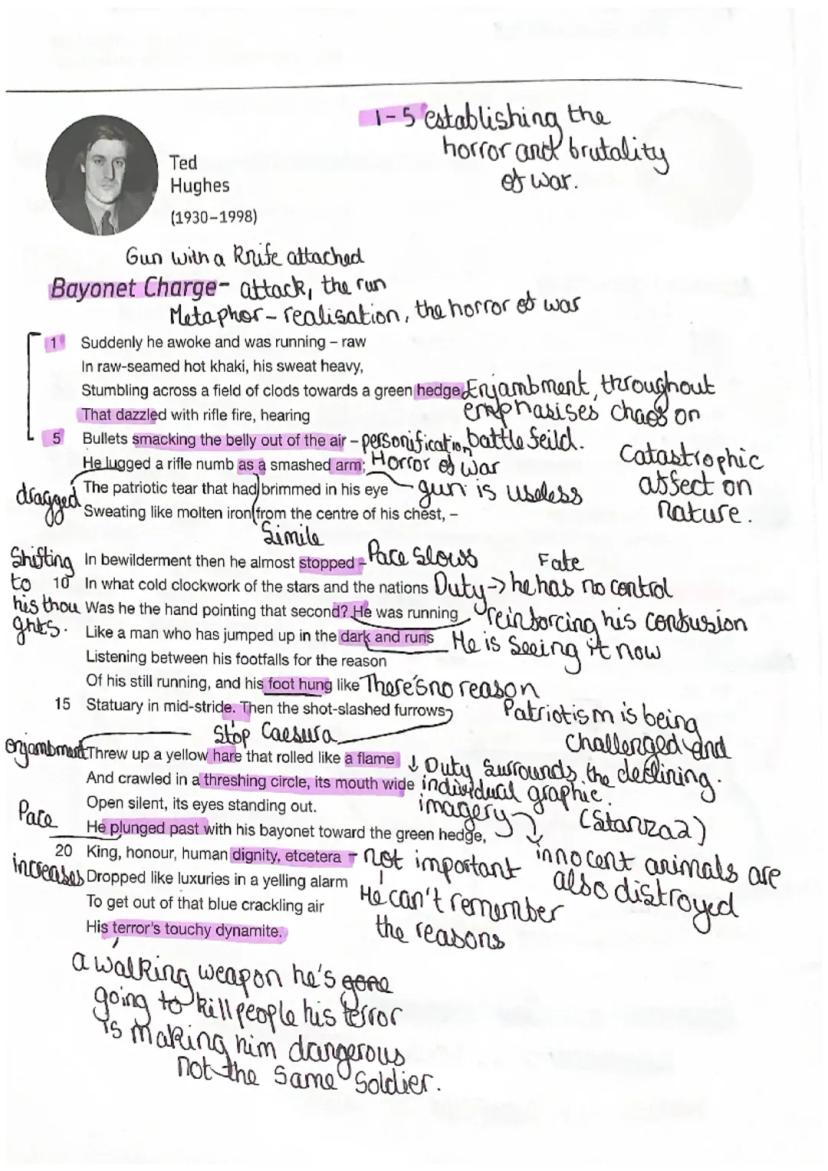 1-5 establishing the
horror and brutality
of war.
Ted
Hughes
(1930–1998)
Gun with a Knife attached
Bayonet Charge - attack, the run
Metaphor - realisation, the horror of war
1 Suddenly he awoke and was running – raw
In raw-seamed hot khaki, his sweat heavy,
Stumbling across a field of clods towards a green hedge Enjambment, throughout
That dazzled with rifle fire, hearing emphasises chaos on
5 Bullets smacking the belly out of the air - personification, battle feild.
He lugged a rifle numb as a smashed arm; Horror of war
Catastrophic
affect on
nature.
dragged
The patriotic tear that had brimmed in his eye gun is useless
Sweating like molten iron from the centre of his chest, –
Simile
Shifting
to
his thou
ghts.
In bewilderment then he almost stopped – Pace Slows Fate
10 In what cold clockwork of the stars and the nations Duty → he has no control
Was he the hand pointing that second? He was running reinforcing his confusion
Like a man who has jumped up in the dark and runs He is seeing it now
Listening between his footfalls for the reason
Of his still running, and his foot hung like There's no reason
15 Statuary in mid-stride. Then the shot-slashed furrows
Stop Caesura
Patriotism is being
challenged and
the declining.
(Stanza 2)
enjambment Threw up a yellow hare that rolled like a flame ↓ Duty surrounds
And crawled in a threshing circle, its mouth wide individual graphic.
Open silent, its eyes standing out. imagery
Pace
increases
He plunged past with his bayonet toward the green hedge,
20 King, honour, human dignity, etcetera - not important
Dropped like luxuries in a yelling alarm
To get out of that blue crackling air
His terror's touchy dynamite.
He can't remember
the reasons
innocent animals are
also distroyed
a walking weapon he's gone
going to kill people his terror
is making him dangerous
not the same soldier.